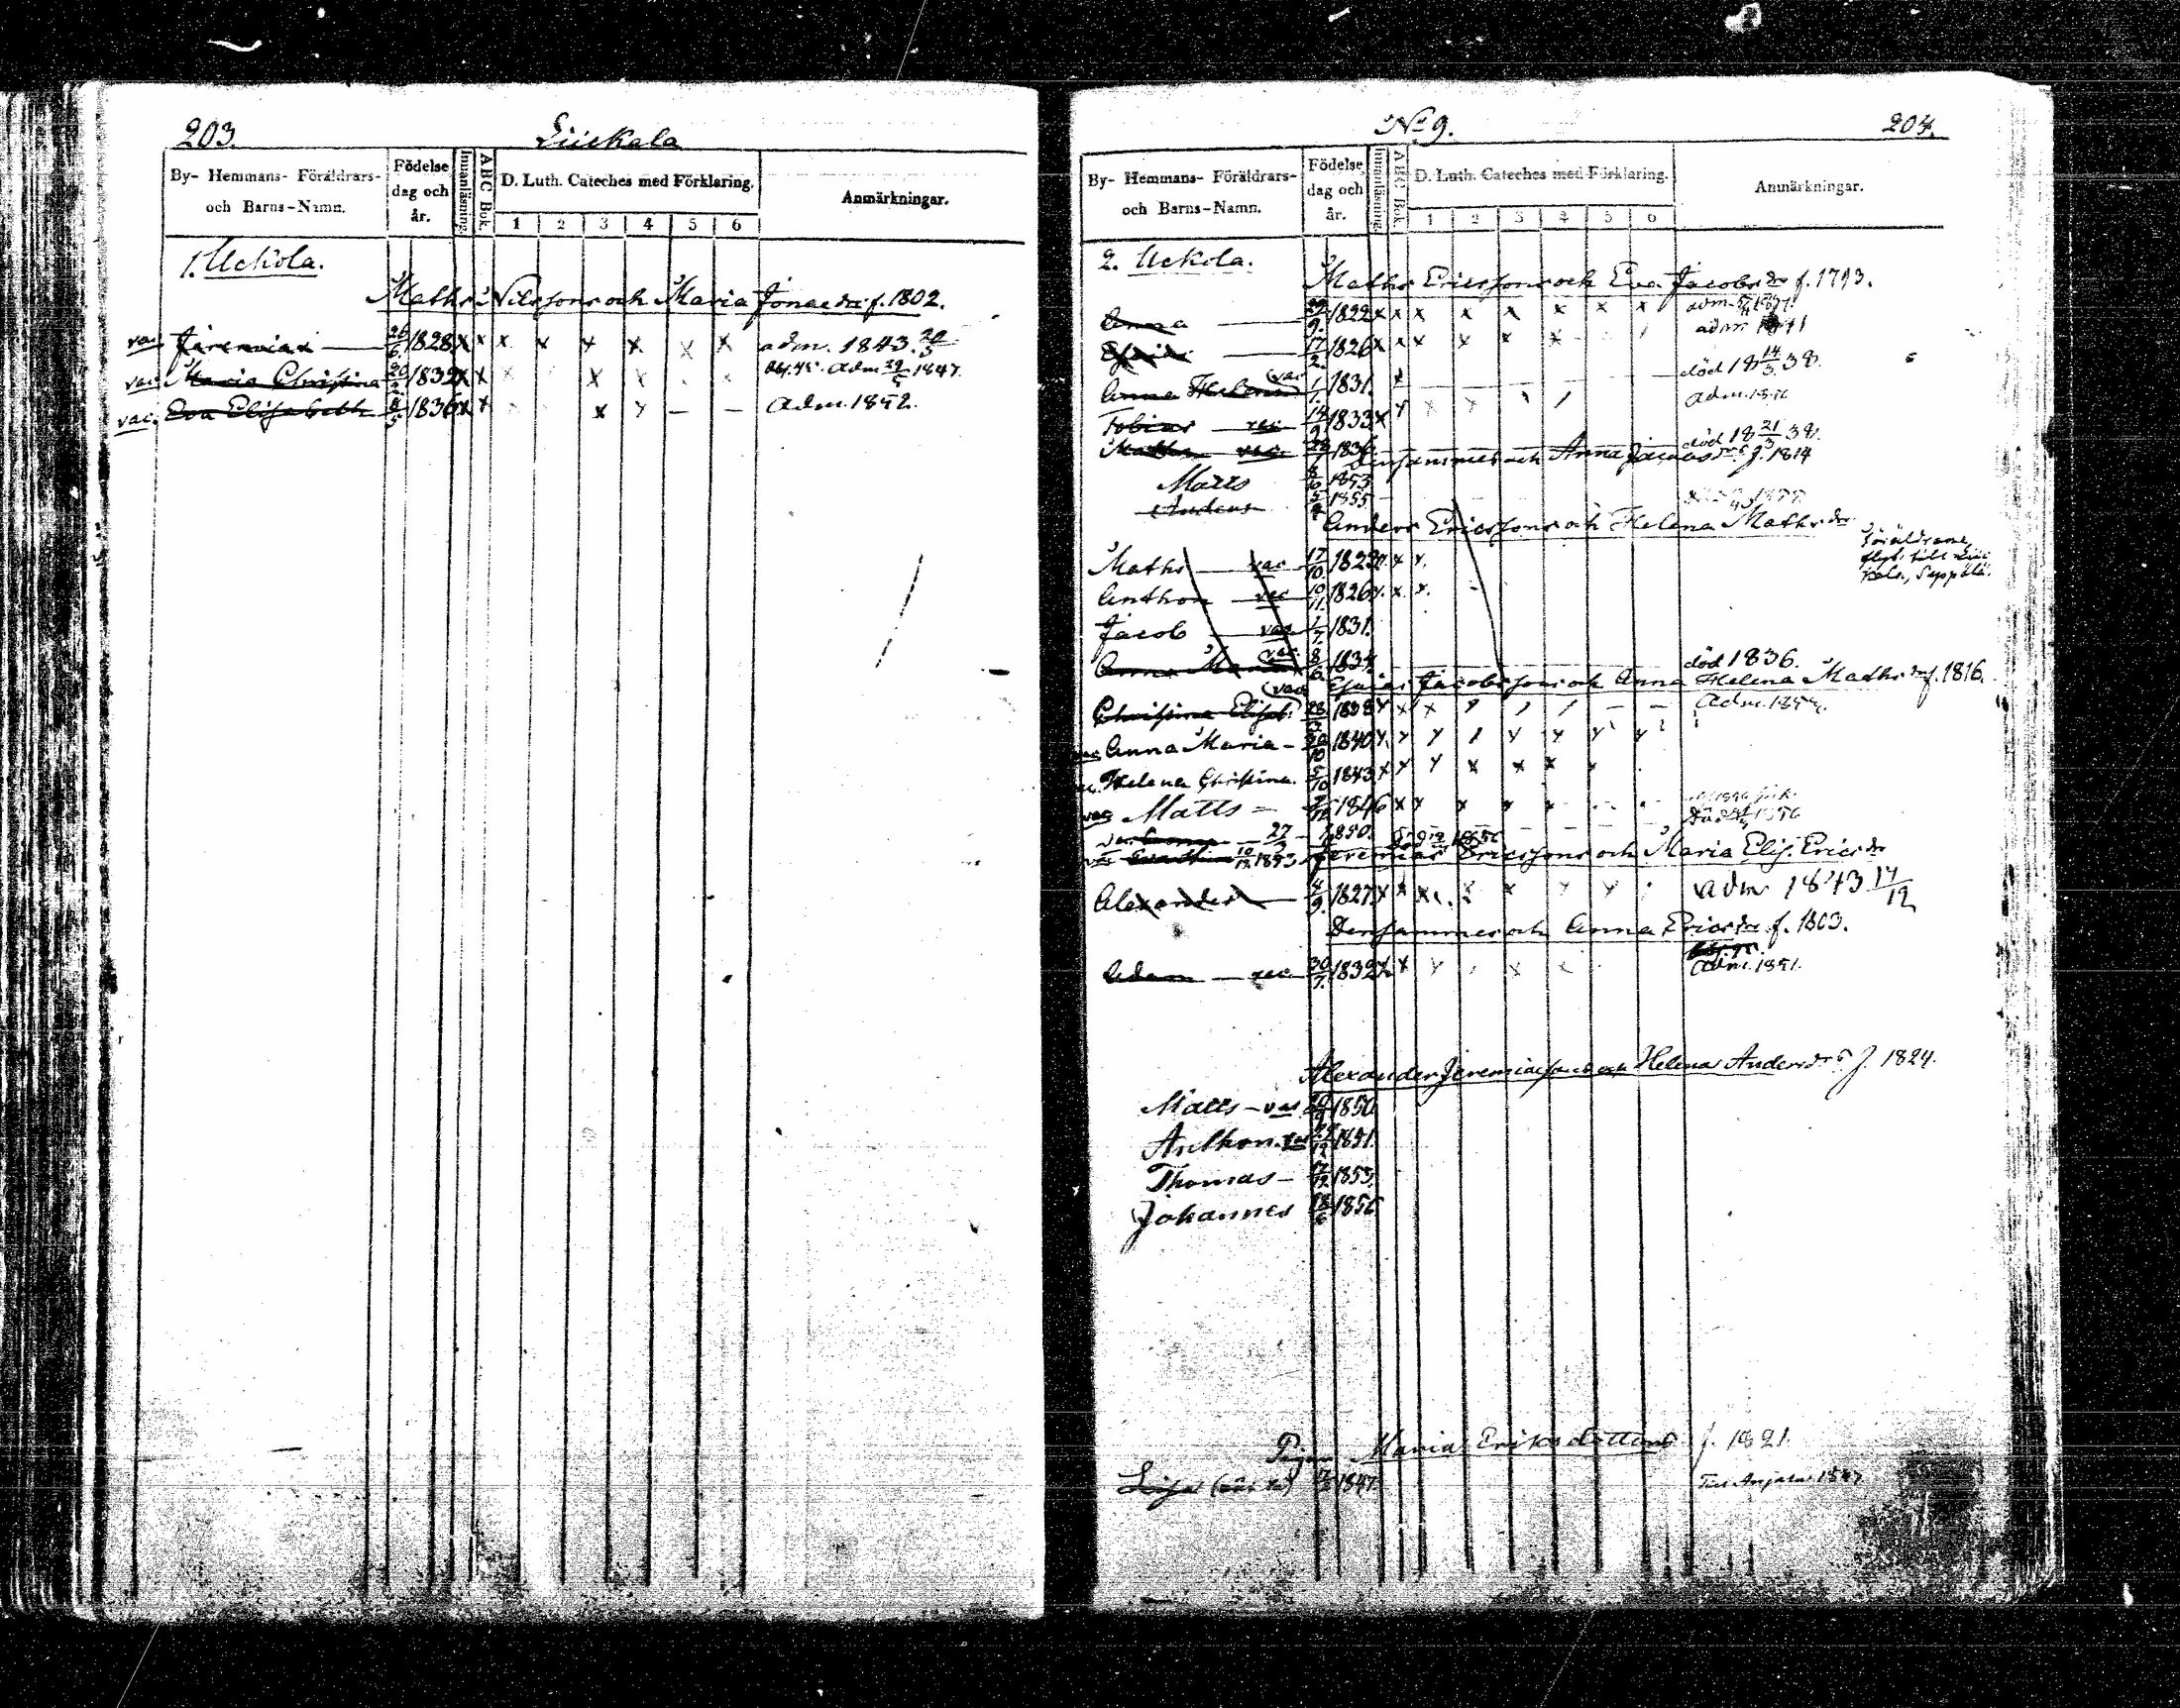 203. Liickala
By- Hemmans- Föräldrars- och Barns-Namn. Födelse dag och år. Innanläsning. ABC Bok. D. Luth. Cateches med Förklaring. 1 2 3 4 5 6 Anmärkningar.
1. Uckola.
Maths Nilssons och Maria Jonaedr f. 1802.
vac. Jeremias 26/6 1828 x x x x x x x x adm. 1843.
vac. Maria Christina 20/2 1832 x x x adm 1847.
vac. Eva Elisabeth 1836 x x x x — — adm. 1852.
No 9. 204.
By- Hemmans- Föräldrars- och Barns-Namn. Födelse dag och år. Innanläsning. ABC Bok. D. Luth. Cateches med Förklaring. 1 2 3 4 5 6 Anmärkningar.
2. Uckola.
Maths Ericssons och Eva Jacobsdr f. 1793.
Anna 1822 x x x x x x x x adm.
17/2 1826 x x x x x x adm
Anna Helena vac 1/1. 1831. x död 18 14/3 38.
Tobias vac 14/9 1833 x adm.
Maths vac 1836 död 18 21/3 38.
Densammes och Anna Jacobsdr f. 1814
Matts 1853
Anders 1855
Anders Ericssons och Helena Mathsdr
Föräldrarne flyt. till Liickala, Seppälä.
Maths vac 17/10 1822 x x x.
Anthon vac 10/11. 1826 x. x x.
Jacob vac 1/7. 1831.
Anna Maria vac. 8/6 1834. död 1836.
Esaias Jacobssons och Anna Helena Mathsdr f. 1816.
Christina Elisab. vac 1838 x x x — — adm.
Anna Maria 1840
Helena Christina. 5/10 1843
vac Matts 1846
27 1850.
Eva Stina 10/12 1853
Jeremias Ericssons och Maria Elis. Ericsdr
Alexander 4/9. 1827 x x x adm 1843 17/12
Densammes och Anna Ericsdr f. 1803.
Adam vac 30/7. 1832 adm. 1851.
Alexander Jeremiaesons och Helena Andersdr f. 1824.
Matts vac 1850
Anthon. vac 1851.
Thomas 17/12 1853.
Johannes 18/6 1856
Pigan Maria Eriksdotters f. 1821.
Lisa 1847. Till Anjala 1847